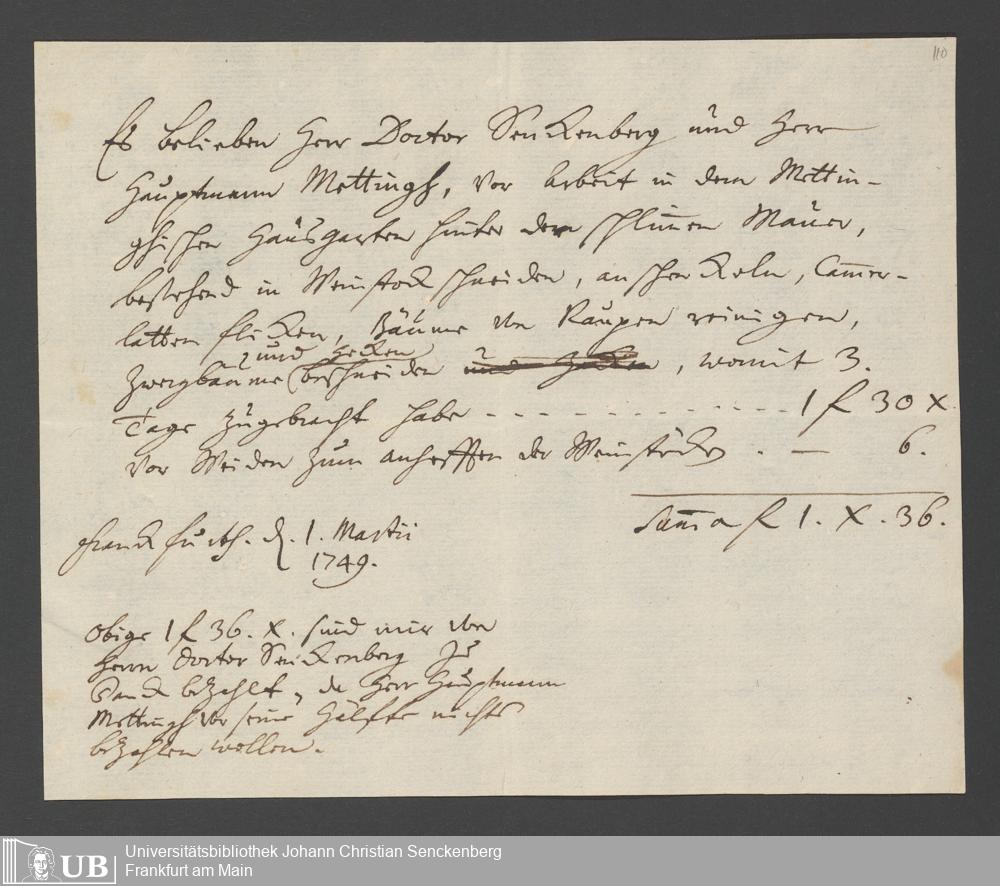 110
Es belieben Herr Doctor Senckenberg und Herr
Hauptmann Mettingh, vor Arbeit in dem Mettin-
ghischen Hausgarten hinter der schlimmen Mauer,
bestehend in Weinstock schneiden, an schenckeln, Cammer-
latten flicken, Bäume von Raupen reinigen,
und Hecken
Zwergbäume beschneiden und Hecken, womit 3.
Tage zugebracht habe - - - - - - - - - - - - 1 f 30 x.
vor Weiden zum anhefften der Weinstöcke . — 6.
Summa f 1. X. 36.
Franckfurth. d. 1. Martii
1749.
Obige 1 f 36. x. sind mir von
Herrn Doctor Senckenberg zu
Danck bezahlt, da Herr Hauptmann
Mettingh vor seine Hälfte nichts
bezahlen wollen.
UB
Universitätsbibliothek Johann Christian Senckenberg
Frankfurt am Main